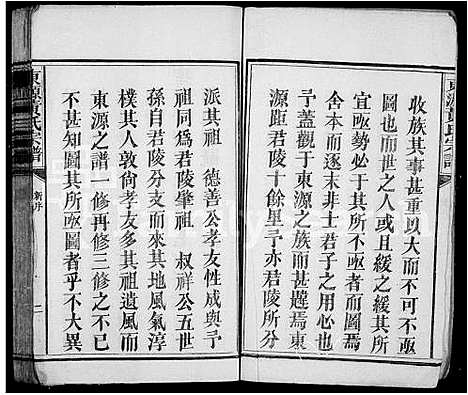 收族其事甚重以大而不可不亟
圖也而世之人或且緩之緩其所
宜亟勢必亟于其所不亟者而圖焉
舍本而逐末非士君子之用心也
予蓋觀于東源之族而甚韙焉東
源距君陵十餘里予亦君陵所分
派其祖 德善公孝友性成與予
祖同爲君陵肇祖 叔祥公五世
孫自君陵分支而來其地風氣淳
樸其人敦尚孝友多其祖遺風而
東源之譜一修再修三修之不已
不甚知圖其所亟圖者乎不大異
新序
氏宗譜